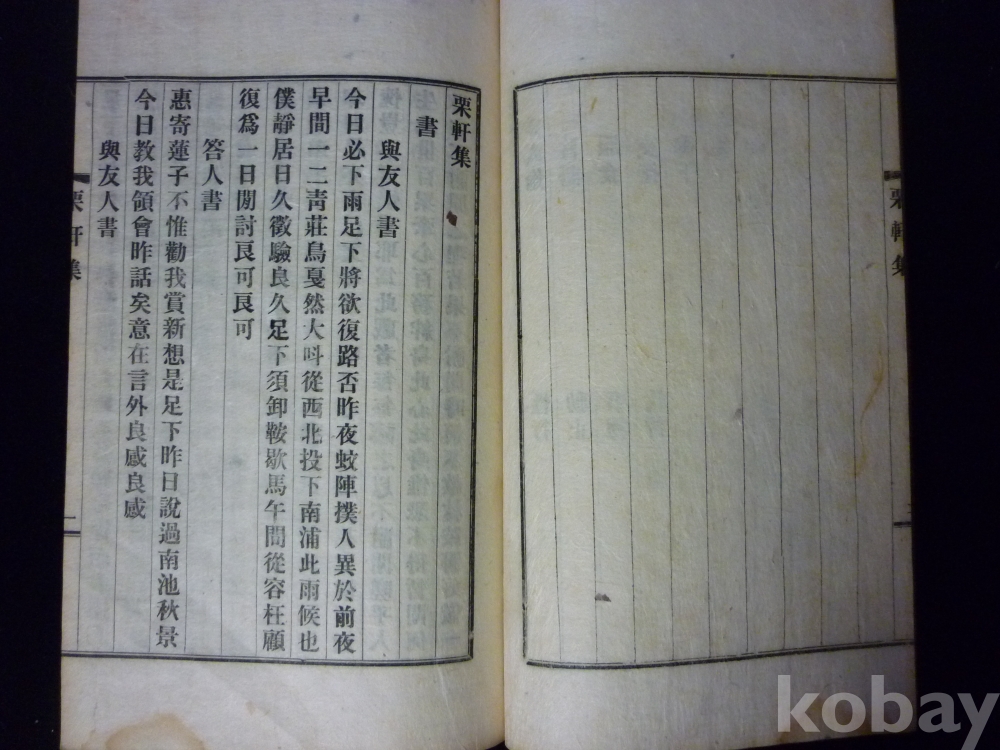 栗軒集
書
與友人書
今日必下雨足下將欲復路否昨夜蚊陣撲人異於前夜
早間一二靑莊鳥戛然大呌從西北投下南浦此雨候也
僕靜居日久徵驗良久足下須卸鞍歇馬午間從容枉顧
復爲一日閒討良可良可
答人書
惠寄蓮子不惟勸我賞新想是足下昨日說過南池秋景
今日教我領會昨話矣意在言外良感良感
與友人書
栗軒集
一
栗軒集
kobay